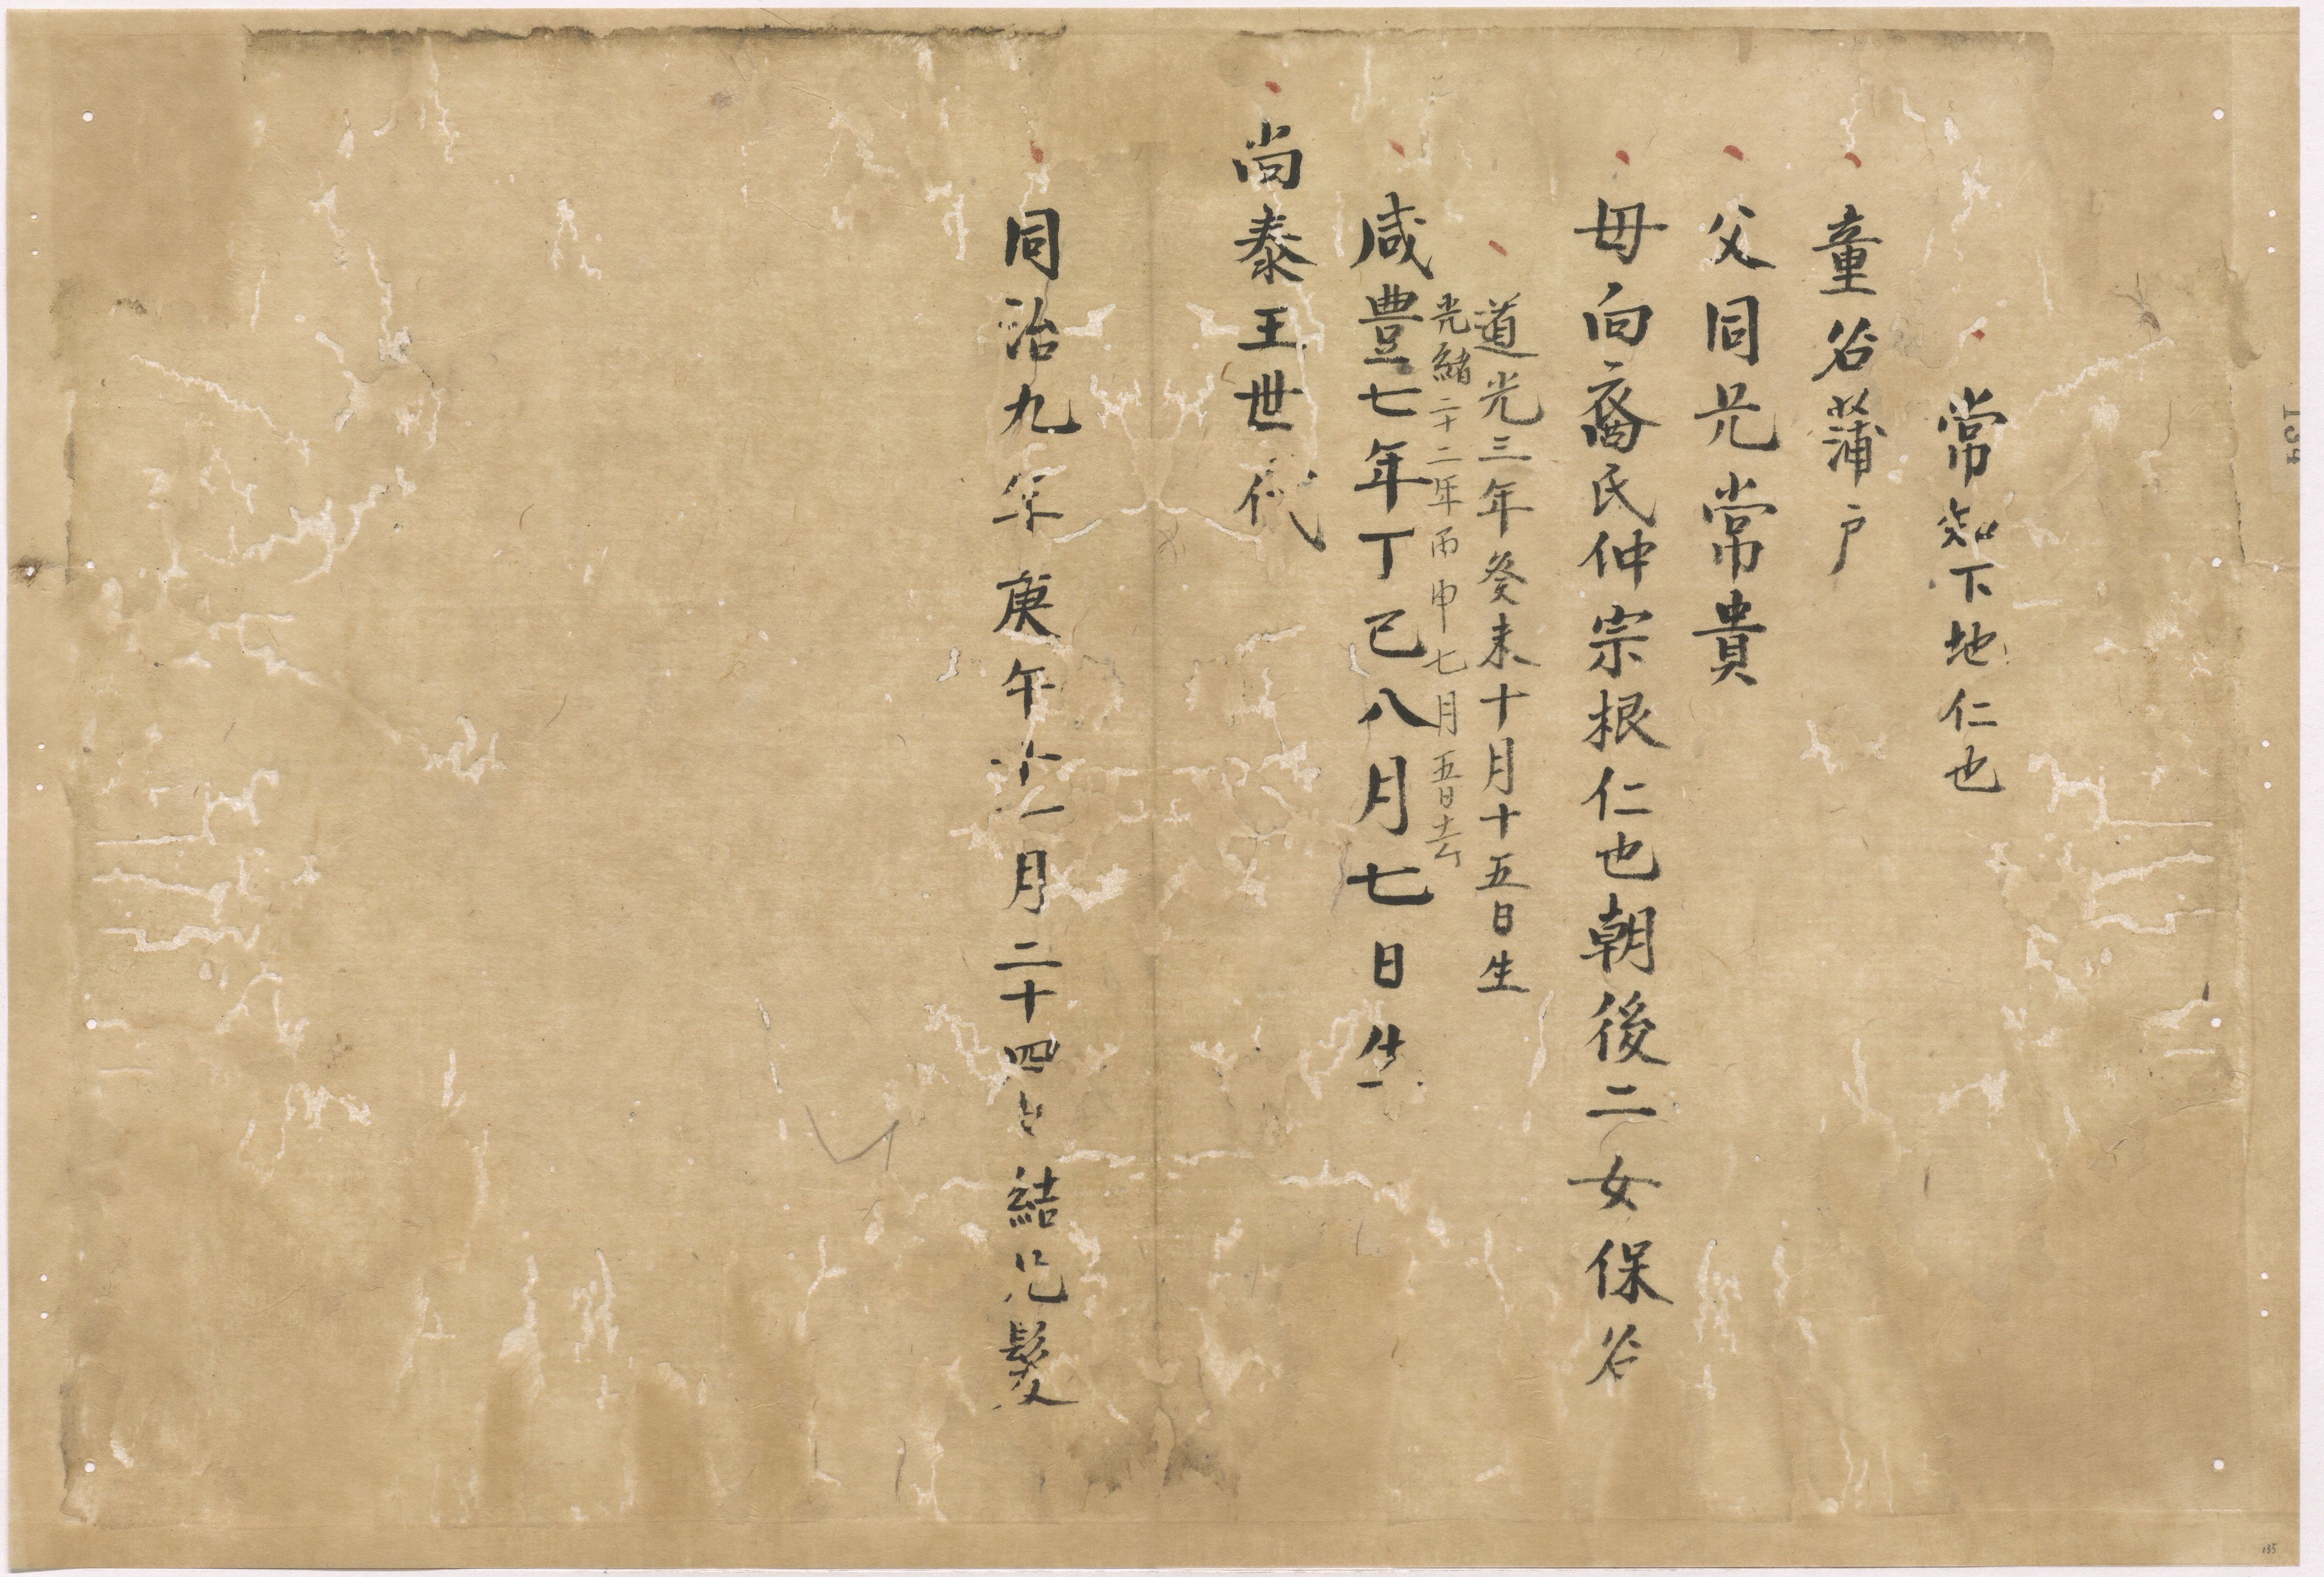 常知下地仁也
童名蒲戸
父同兄常貴
母向裔氏仲宗根仁也朝後二女保名
道光三年癸未十月十五日生
光緒二十二年丙申七月五日去
咸豊七年丁巳八月七日生
尚泰王世代
同治九年庚午十一月二十四日結片髪
134
135